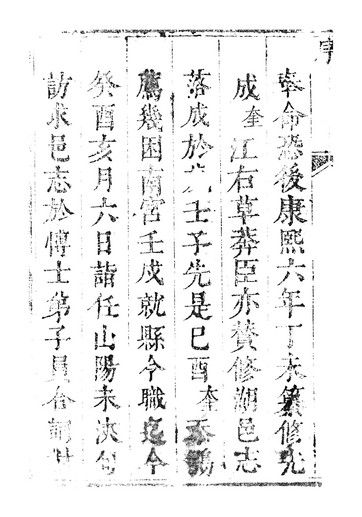 序
奉命恐後康熙六年丁未纂修先
成奎江右草莽臣亦贊修湖邑志
落成於壬子先是己酉奎
薦幾困南宮壬戌就縣令職迄今
癸酉亥月六日詣任山陽未浹旬
訪求邑志於博士弟子員合詞